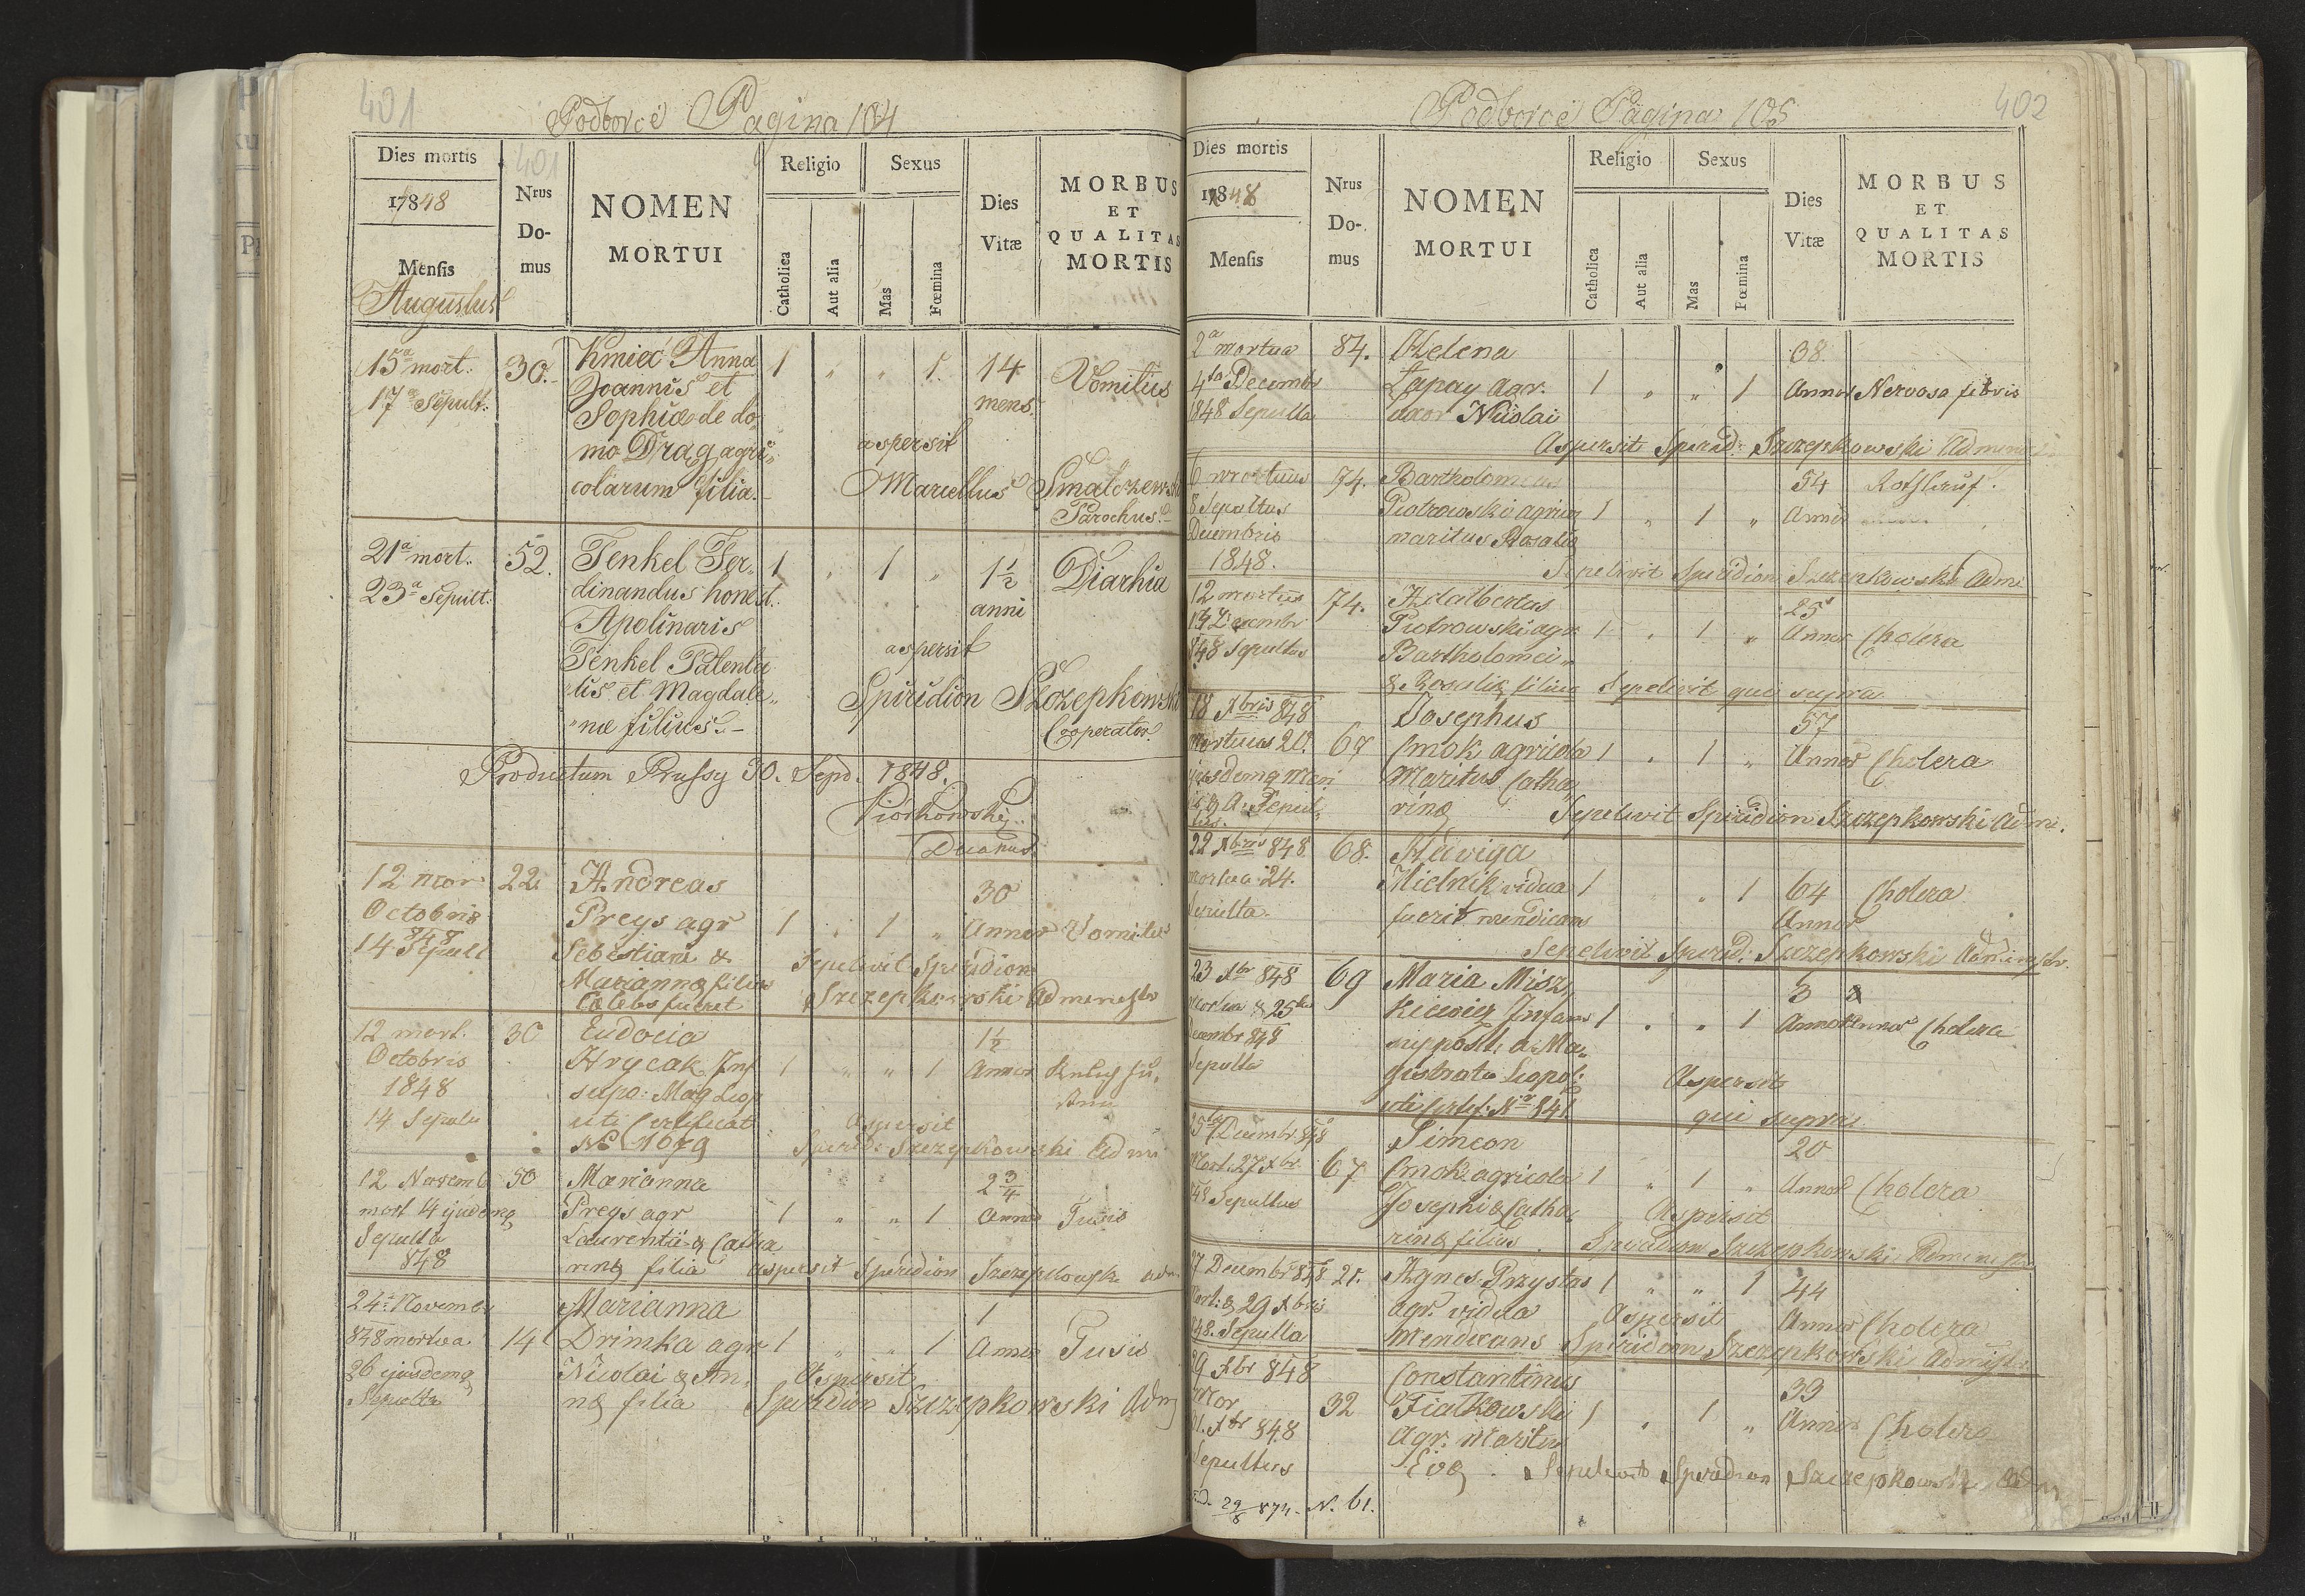 401
Podborce Pagina 104
Dies mortis
1848
Mensis
Augustus
401
Nrus
Do-
mus
NOMEN
MORTUI
Religio
Catholica
Aut alia
Sexus
Mas
Fœmina
Dies
Vitæ
MORBUS
ET
QUALITAS
MORTIS
15a mort. 30. Kmieć Anna 1 " " 1. 14 Vomitus
17a Sepult. Joannis et mens.
Sophiæ de do
mo Drag agri"
colarum filia.–
aspersit
Marcellus Smalczewski
Parochus.–
21a mort. 52. Tenkel Fer- 1 " 1 " 1½ Diarhia
23a Sepult. dinandus honest. anni
Apolinaris
Tenkel
lis et Magdale"
"næ filius.–
aspersit
Spiridion Szczepkowski
Cooperator.
Productum Prussy 30. Sept. 1848.
Piorkowski
Decanus
12 mor 22. Andreas 30
Octobris Preys agr 1 " 1 " Annor Vomitus
848
14 Sepult Sebestiani &
Marianna filius
Cælebs fueret
Sepelivit Spiridion
Szczepkowski Administr
12 mort. 30 Eudocia 1½
Octobris Hrycak Inf 1 " " 1 Annor
1848 supo: Mag Leop
14 Sepulta uti Certificat
No 1079
Aspersit
Spirid: Szczepkowski Admi
12 Novemb 50 Marianna 2¾
mort 14 ejudemq Preys agr 1 " " 1 Annor Tusis
Sepulta Laurentii & Catha
848 rinæ filia aspersit Spiridion Szczepkowski adm.
24a Novemb Marianna 1
848 mortua 14 Drimka agr 1 " " 1 Annor Tusis
26 ejusdemq Nicolai & An"
Sepulta næ filia
Aspersit
Spiridion Szczepkowski Adm
402
Podborce Pagina 105
Dies mortis
1848
Mensis
Nrus
Do-
mus
NOMEN
MORTUI
Religio
Catholica
Aut alia
Sexus
Mas
Fœmina
Dies
Vitæ
MORBUS
ET
QUALITAS
MORTIS
2a mortua 84. Helena 38.
4ta Decembr Łapay agr. 1 " " 1 Annor Nervosa febris
1848 Sepulta uxor Nicolai
Aspersit Spirid: Szczepkowski Adm
6 mortuus 74. Bartholomeus 54
8 Sepultus Piotrowski agric 1 " 1 " Annor
Decembris maritus Rosaliæ
1848.
Sepelivit Spiridion Szczepkowski Admi
12 mortus 74. Adalbertus 25
14 Decembr Piotrowski agr. 1 " 1 " Annor Cholera
848 Sepultus Bartholomei "
& Rosaliæ filius Sepelivit qui supra
18 Xbris 848 Josephus 57
Mortuus 20. 67 Cmok agricola 1 " 1 " Annor Cholera
ejusdemq Maritus Catha
rinæ Sepelivit Spiridion Szczepkowski Admi.
22 Xbris 848. 68. Hedviga
mortua 24. Mielnik vidua 1 " " 1 64 Cholera
Sepulta. fuerit mendicans Annor
Sepelivit Spirid: Szczepkowski Administr.
23 Xbr 848 69 Maria Misz, 3
Mortua & 25ta kiewicz Infans 1 " " 1 Annor Cholera
Decembr 848 suppost: a Ma"
Sepulta gistratu Leopol:
uti Certif: No 841
Aspersit
qui supra.
25ta Decembr 848 Simeon 20
Mort. 27 Xbr. 67 Cmok agricola 1 " 1 " Annor Cholera
848 Sepultus Josephi & Catha,
rinæ filius.
Aspersit
Spiridion Szczepkowski Administr
27 Decembr 848 21. Agnes Przystas 1 " " 1 44
Mort: & 29 Xbris agr. vidua Annor Cholera
848. Sepulta mendicans
Aspersit
Spiridion Szczepkowski Admist:
29 Xbr 848 Constantinus 33
Mor 32 Fiałkowski 1 " 1 " Annor Cholera
31. Xbr 848 Agr. Maritus
Sepultus Evæ. Sepelivit Spiridion Szczepkowski Adm
29/8 874. N. 61.